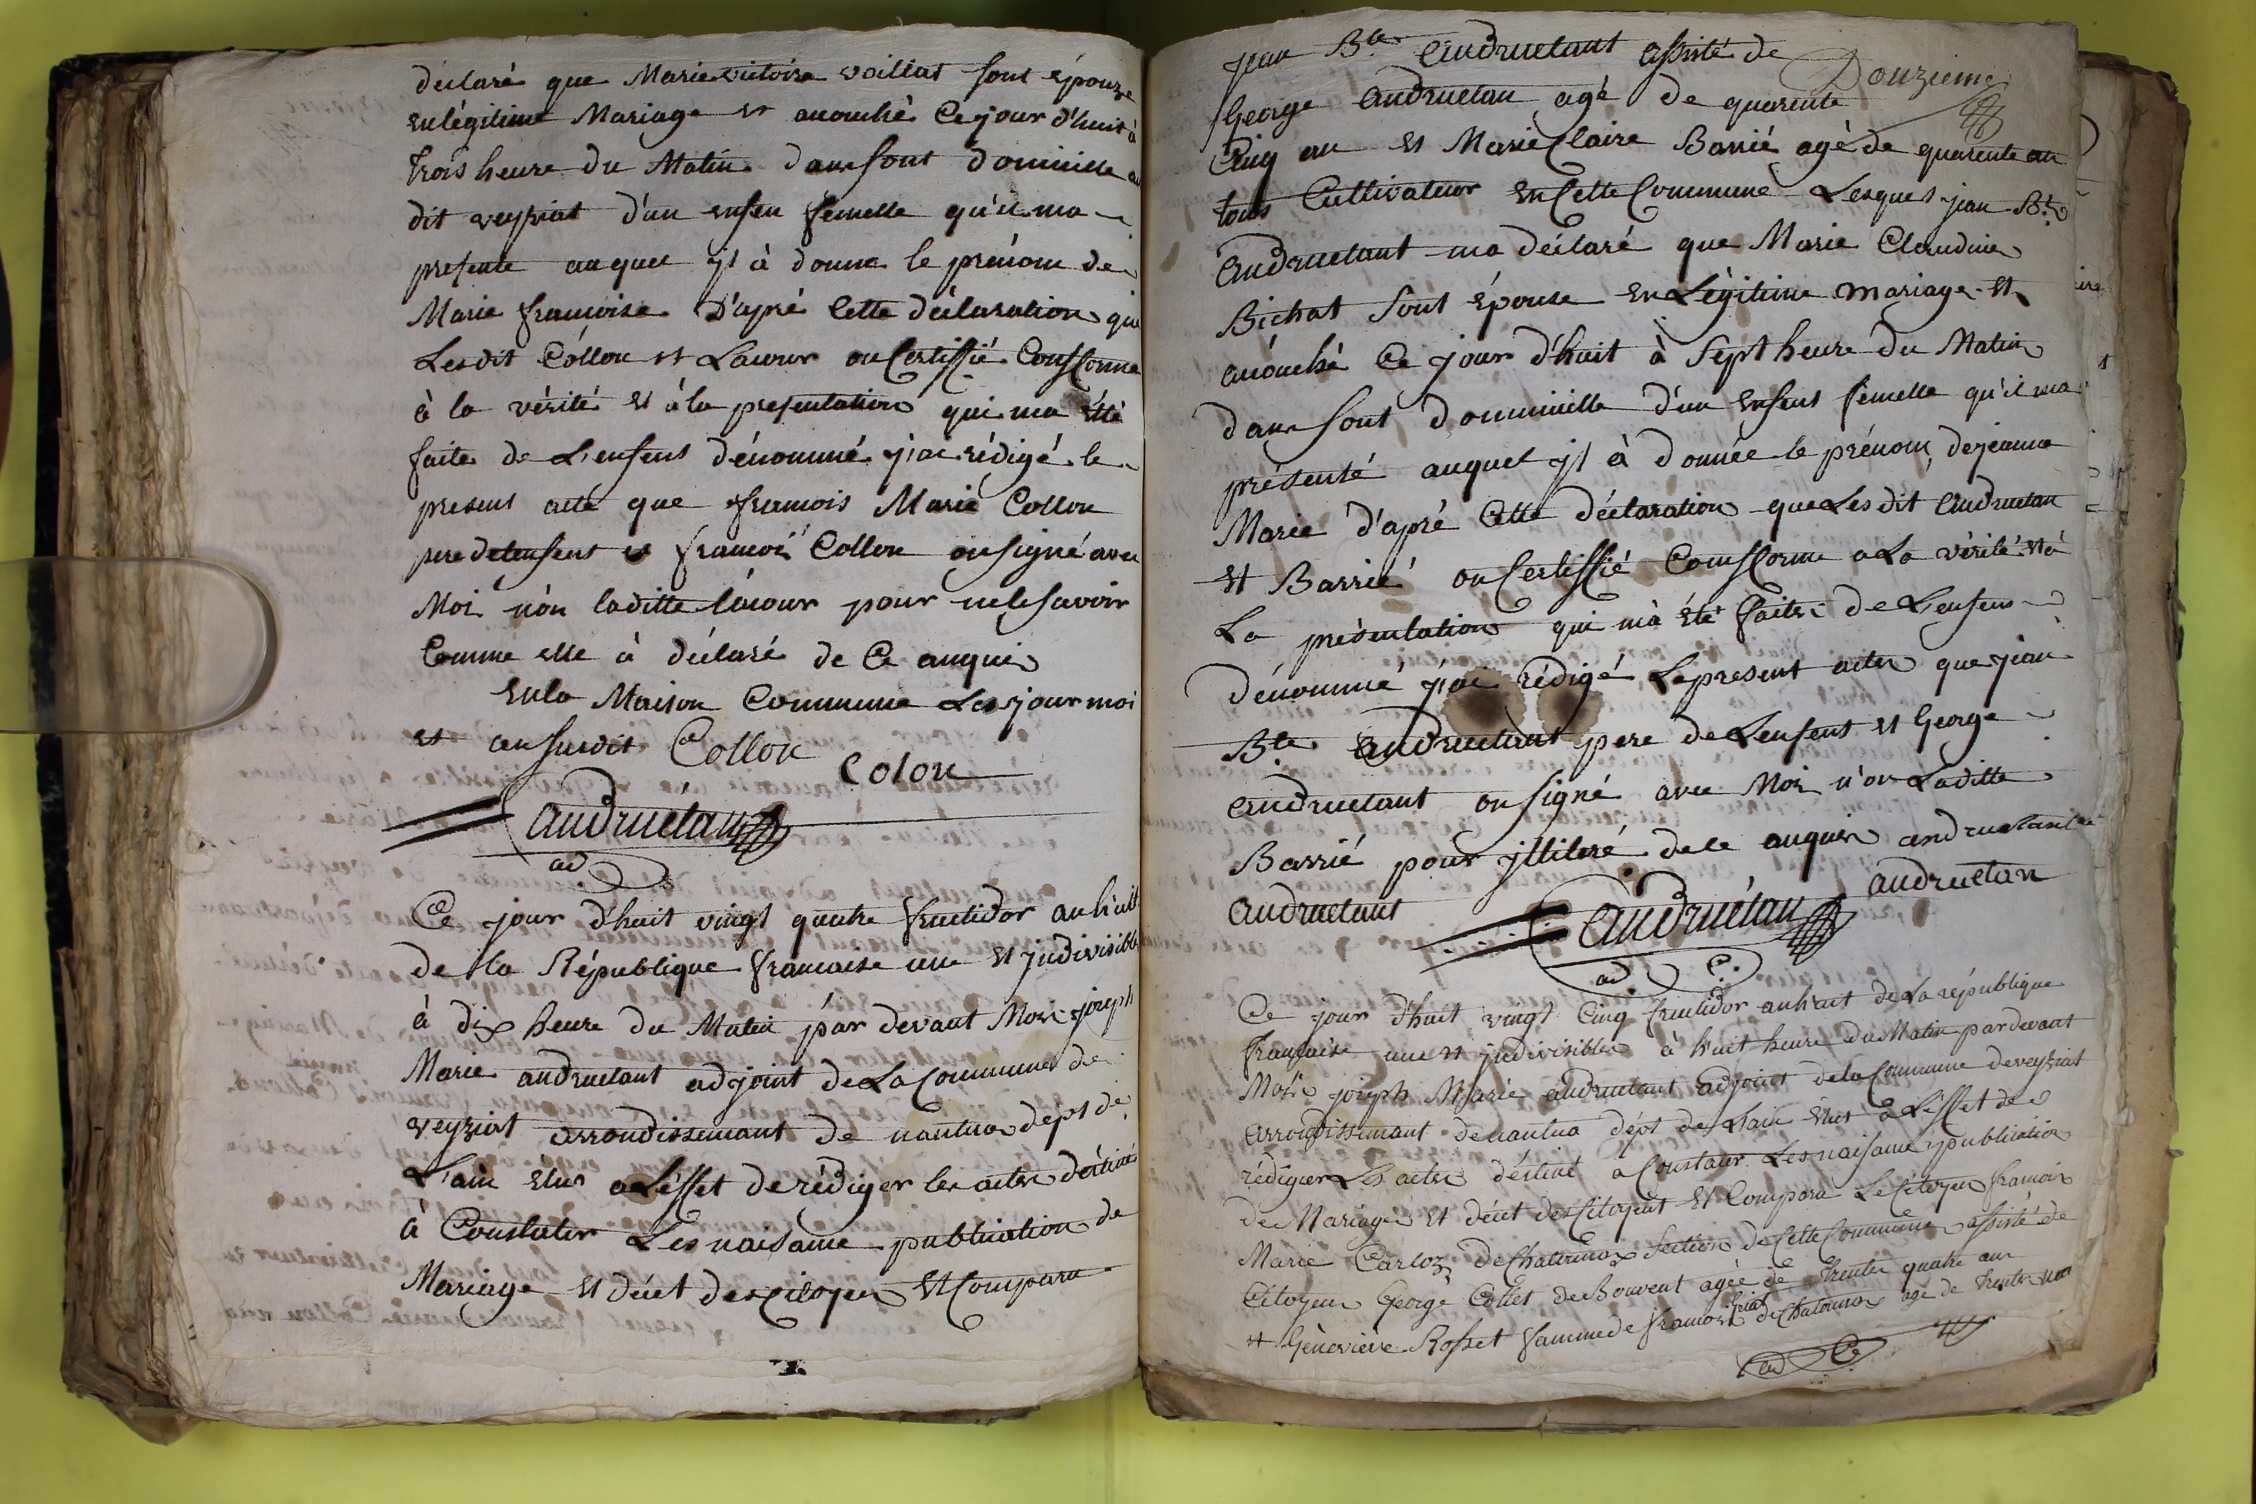 déclaré que Marie victoire voillat sont épouze
en légitime Mariage et acouché Ce jour d'huit à
trois heure du Matin dans sont domicille au
dit veyziat d'un enfen femelle qu'il ma
presente auquel jl à donné le prénom de
Marie françoise D'apré Cette déclaration que
Lesdit Collon et Lacour on Certiffié Conforme
à la vérité et à la presentation qui ma été
faite de L'enfent dénommé j'ai rédigé le
present acte que francois Marie Collon
pere de lenfent et francoi Collon on signé avec
Moi nôn laditte lacour pour ne le savoir
Comme elle à déclaré de Ce anquis
en la Maison Commune Les jour moi
et an susdit Collon Colon
andruétan
ad.
Ce jour d'huit vingt quatre fructidor an huit
de la République francaise une et jndivisible
à dix heure du Matin par devant Moi joseph
Marie andruetant adjoint de La Commune de
veyziat arrondissemant de nantua dept de
L'ain élus a L'effet de rédiger les actes déstiné
à Constater Les naisance publication de
Mariage et décet des citoyen et Comparu
Jean Bte andruetant assisté de
Douzieme
George andruetan agé de quarente
Cinq an et Marie Claire Barrié agé de quarente an
tous Cultivateur en Cette Commune Lesquel jean Bte
andruetant ma déclaré que Marie Claudine
Bichat sont épouse en Légitime mariage et
acouché Ce jour d'huit à sept heure du Matin
dans sont domicille d'un enfent femelle qu'il ma
présenté auquel jl à donnée le prénom de jeanne
Marie d'apré Cette déclaration que Lesdit andruetan
et Barrié on Certiffié Comforme a La vérité et à
La présentation qui m'à été faite de L'enfens
dénommé j'ai rédigé Le present acte que jean
Bte andruetant pere de Lenfent et George
andruetant on signé avec Moi n'on Laditte
Barrié pour jllitéré de ce anquis andruetant
andruetant andruetan
andruétan
ad.
Ce jour d'huit vingt Cinq fructidor an huit de La république
française une et jndivisible à huit heure du Matin par devant
Moi joseph Marie andruetant adjoint de la Commune de veyziat
arrondissemant de nantua dépt de Lain élut a L'éffet de
rédiger Les actes déstiné a Constater Les naisance publication
de Mariage et décet des Citoyent et Comparu Le Citoyen francois
Marie Carloz de Chatonnax section de Cette Commune assisté de
Citoyen George Collet de Bouvent agée de trente quatre an
et Geneviève Rosset famme de francoi de Chatonnax agé de trente
ad